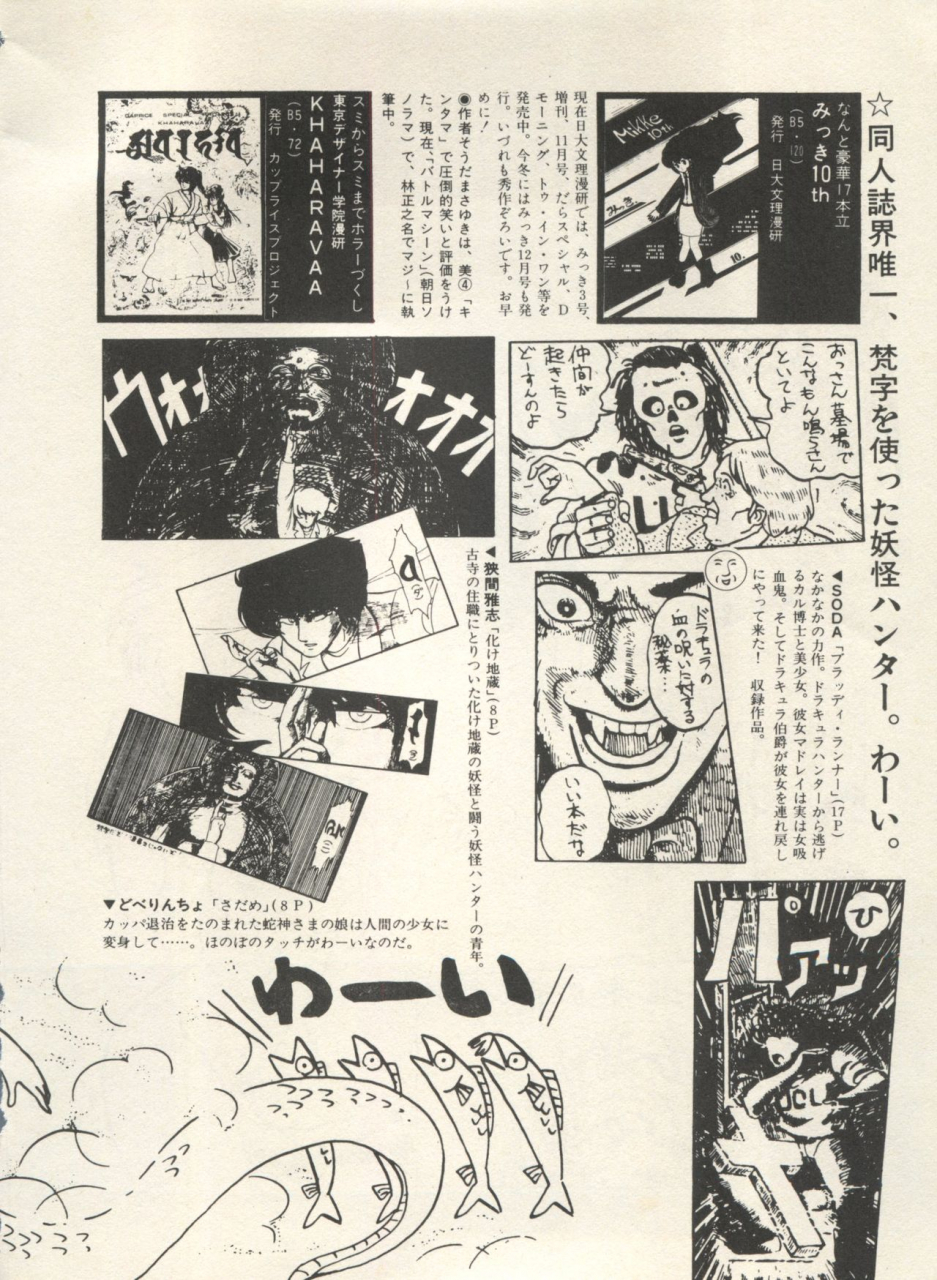 ☆同人誌界唯一、梵字を使った妖怪ハンター。わーい。
なんと豪華17本立
みっき10th
(B5・120)
発行　日大文理漫研
Mikke
10th
10.
現在日大文理漫研では、みっき3号、
増刊、11月号、だらスペシャル、D
モーニング、トゥ・イン・ワン等を
発売中。今冬にはみっき12月号も発
行。いづれも秀作ぞろいです。お早
めに!
◉作者そうだまさゆきは、美④「キ
ンタマ」で圧倒的笑いと評価をうけ
た。現在、「バトルマシーン」(朝日ソ
ノラマ)で、林正之名でマジ〜に執
筆中。
スミからスミまでホラーづくし
東京デザイナー学院漫研
KHAHARAVAA
(B5・72)
発行　カップライスプロジェクト
CAPRICE SPECIAL
おっさん墓場で
こんなもん鳴らさん
といてよ
仲間が
起きたら
どーすんのよ
U
ウオォ
オオオ
◀SODA「ブラッディ・ランナー」(17P)
なかなかの力作。ドラキュラハンターから逃げ
るカル博士と美少女。彼女マドレイは実は女吸
血鬼。そしてドラキュラ伯爵が彼女を連れ戻し
にやって来た!　収録作品。
ドラキュラの
血の呪いに対する
秘薬…
いい本だな
◀狭間雅志「化け地蔵」(8P)
古寺の住職にとりついた化け地蔵の妖怪と闘う妖怪ハンターの青年。
▼どべりんちょ「さだめ」(8P)
カッパ退治をたのまれた蛇神さまの娘は人間の少女に
変身して……。ほのぼのタッチがわーいなのだ。
わーい
ひ
パァッ
UCL